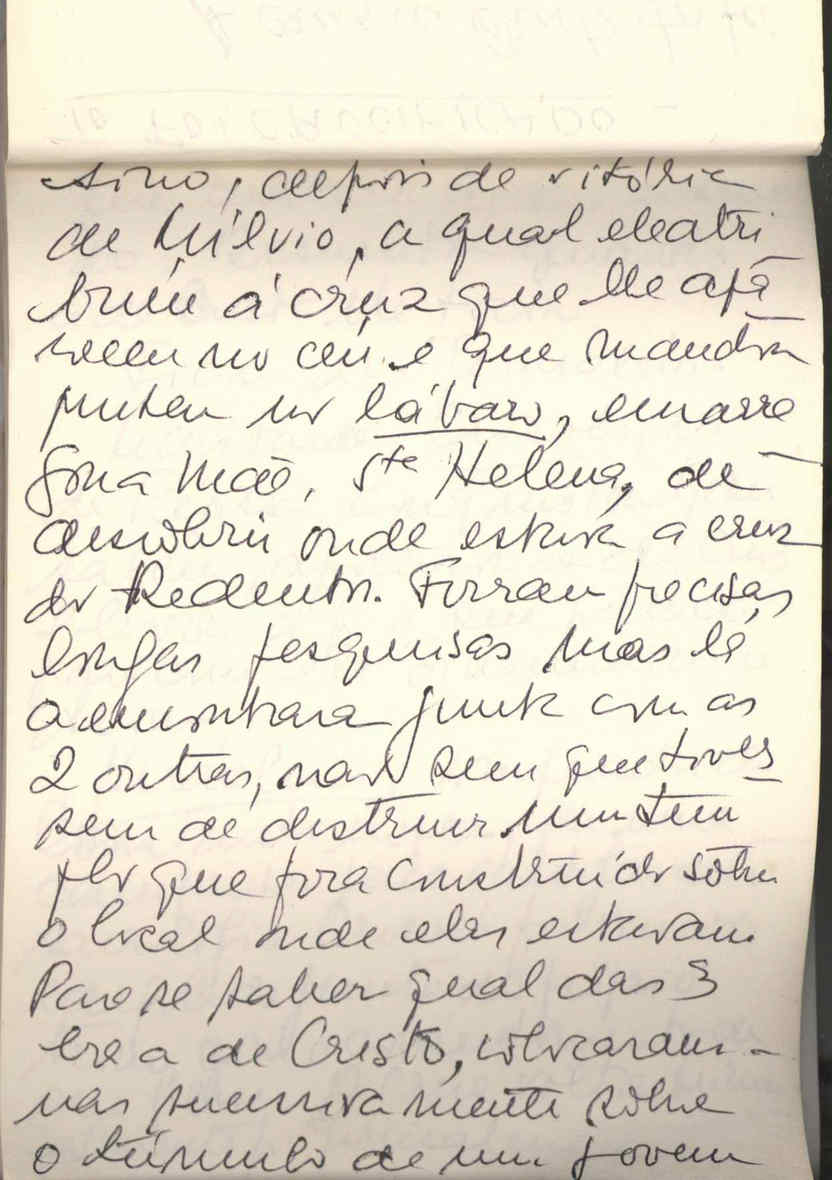 tino, depois de vitória
de Mílvio, a qual ele atri
buiu á cruz que lhe apa
receu no céu e que mandou
no lábaro, encarre
gou a mãe, Sta Helena, de
descobrir onde estava a cruz
do Redentor. Foram precisas
longas pesquisas mas lá
a encontrara junto com as
2 outras, não sem que tives
sem de destruir um tem
plo que fora construído sôbre
o local onde elas estavam.
Para se saber qual das 3
era a de Cristo, colocaram-
nas sucessivamente sôbre
o túmulo de um jovem